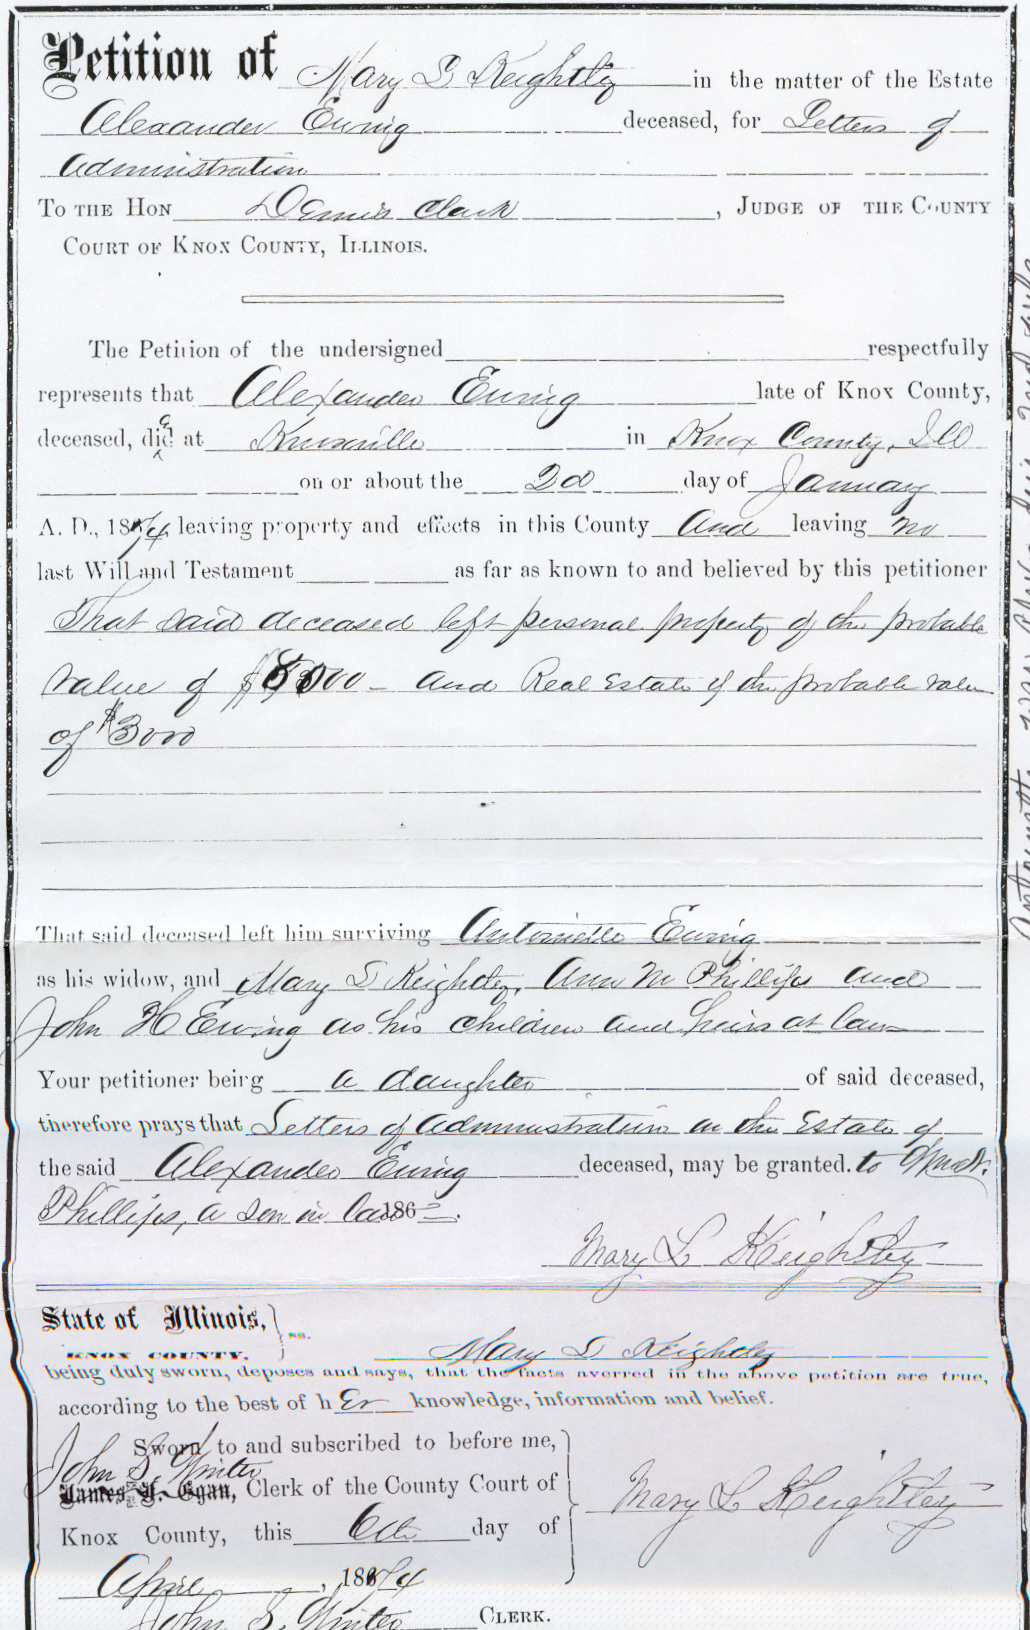 Petition of Mary L Keightley in the matter of the Estate
Alexander Ewing deceased, for Letters of
Administration
To the Hon Dennis Clark, Judge of the County
Court of Knox County, Illinois.
The Petition of the undersigned respectfully
represents that Alexander Ewing late of Knox County,
deceased, died at Knoxville in Knox County, Ill
on or about the 2d day of January
A. D., 1874 leaving property and effects in this County and leaving no
last Will and Testament as far as known to and believed by this petitioner
That said deceased left personal property of the probable
value of and Real Estate of the probable value
of $3000
That said deceased left him surviving Antoinette Ewing
as his widow, and Mary L Keightley, Ann M Phillips and
John H Ewing as his children and heirs at law
Your petitioner being a daughter of said deceased,
therefore prays that Letters of Administration on the Estate of
the said Alexander Ewing deceased, may be granted. to
Phillips, a son in law 186
Mary L Keightley
State of Illinois, } ss.
Knox County.
Mary L Keightley
being duly sworn, deposes and says, that the facts averred in the above petition are true,
according to the best of her knowledge, information and belief.
Sworn to and subscribed to before me,
John S. Winter
James J. Egan, Clerk of the County Court of
Knox County, this 6th day of
April, 1874
Mary L Keightley
John S. Winter Clerk.